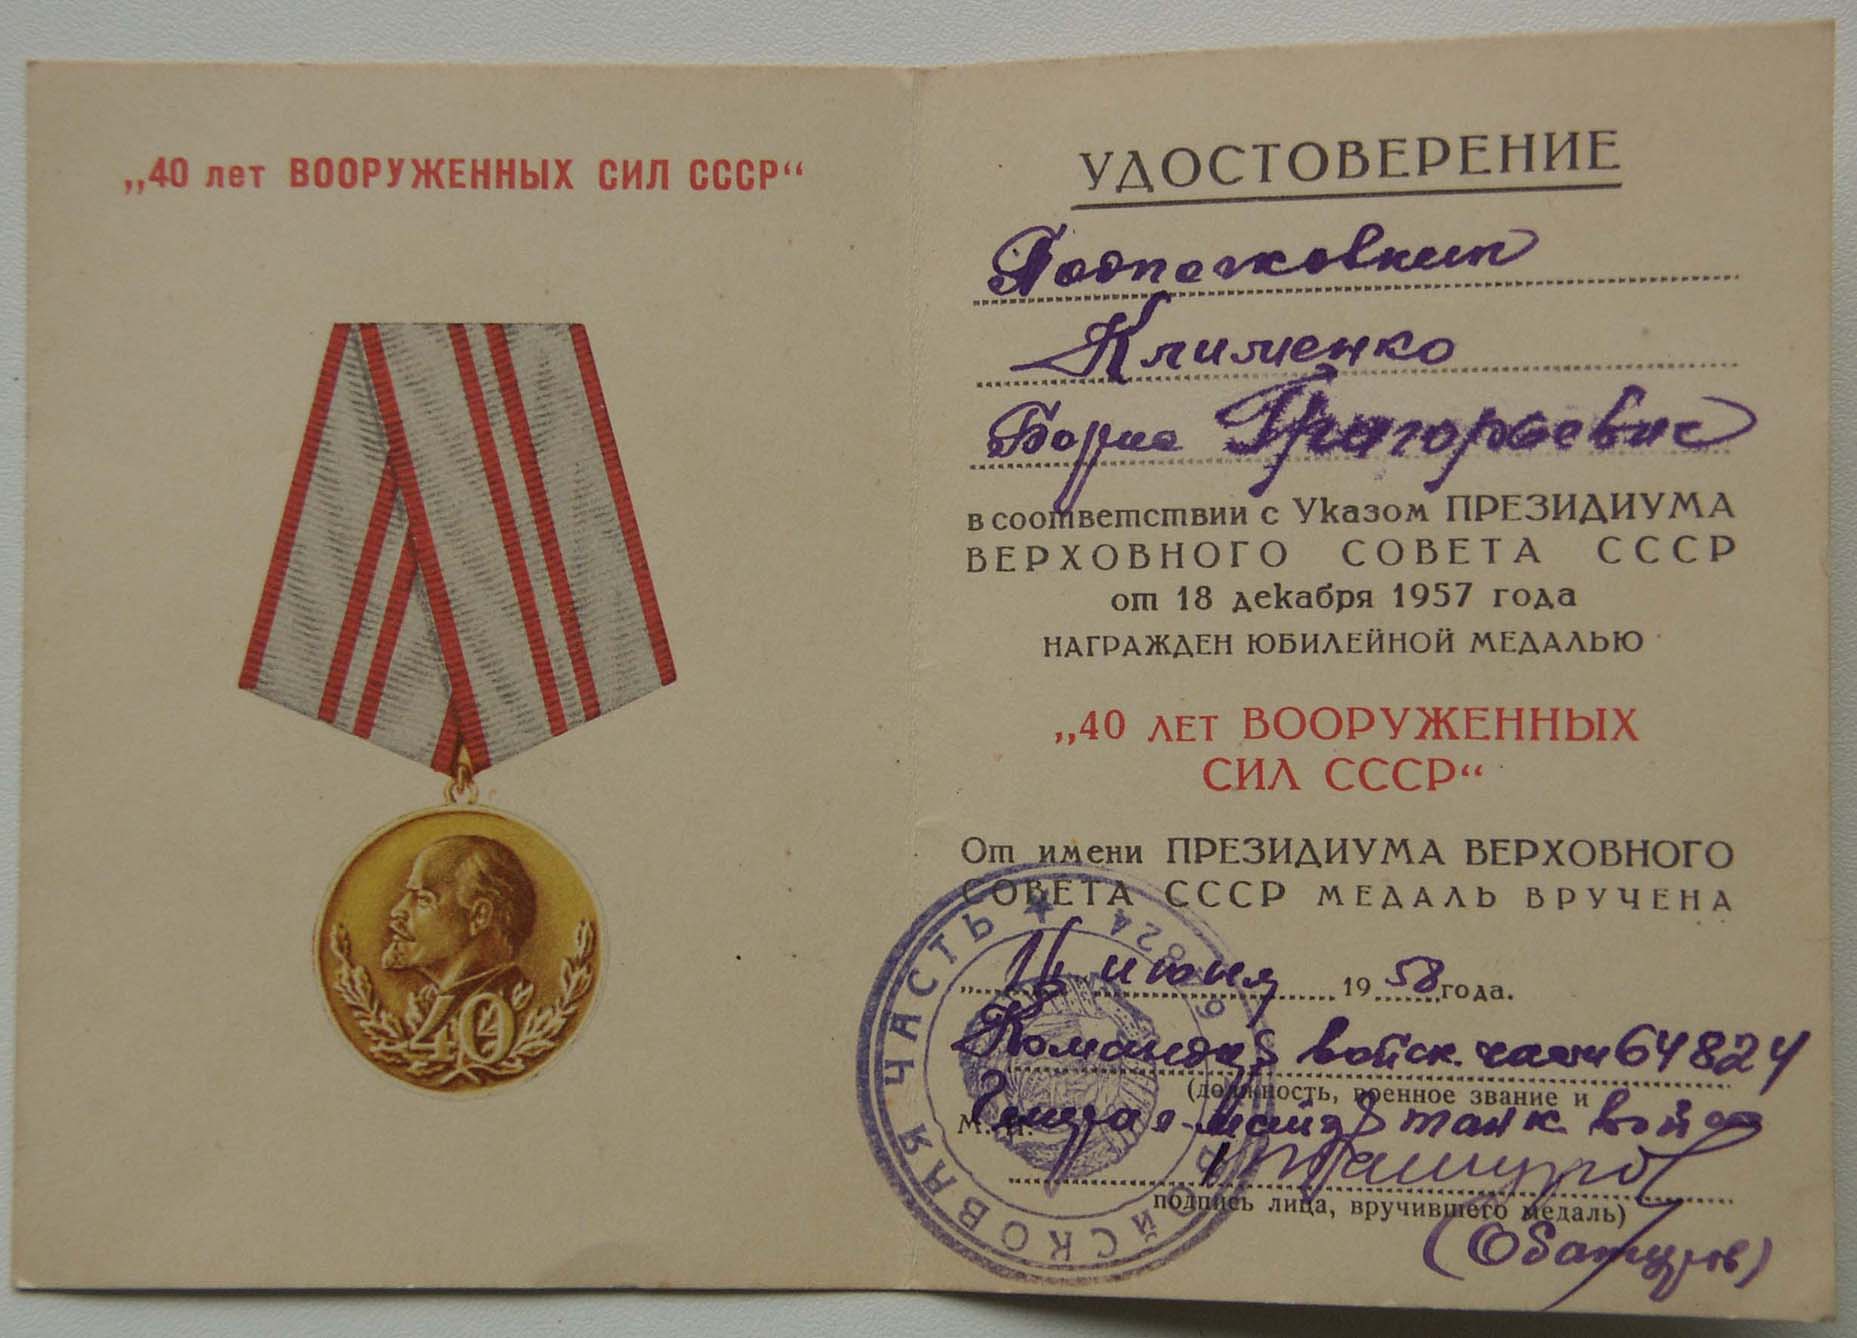 „40 лет ВООРУЖЕННЫХ СИЛ СССР“
40
УДОСТОВЕРЕНИЕ
Подполковник
Клименко
Борис Григорьевич
в соответствии с Указом ПРЕЗИДИУМА
ВЕРХОВНОГО СОВЕТА СССР
от 18 декабря 1957 года
НАГРАЖДЕН ЮБИЛЕЙНОЙ МЕДАЛЬЮ
„40 ЛЕТ ВООРУЖЕННЫХ
СИЛ СССР“
От имени ПРЕЗИДИУМА ВЕРХОВНОГО
СОВЕТА СССР МЕДАЛЬ ВРУЧЕНА
июня 1958 года.
Командир войск. части 64824
(должность, военное звание и
М. П.
Генерал-майор танк. войск
подпись лица, вручившего медаль)
(Обатуров)
ВОЙСКОВАЯ ЧАСТЬ ★ 64824